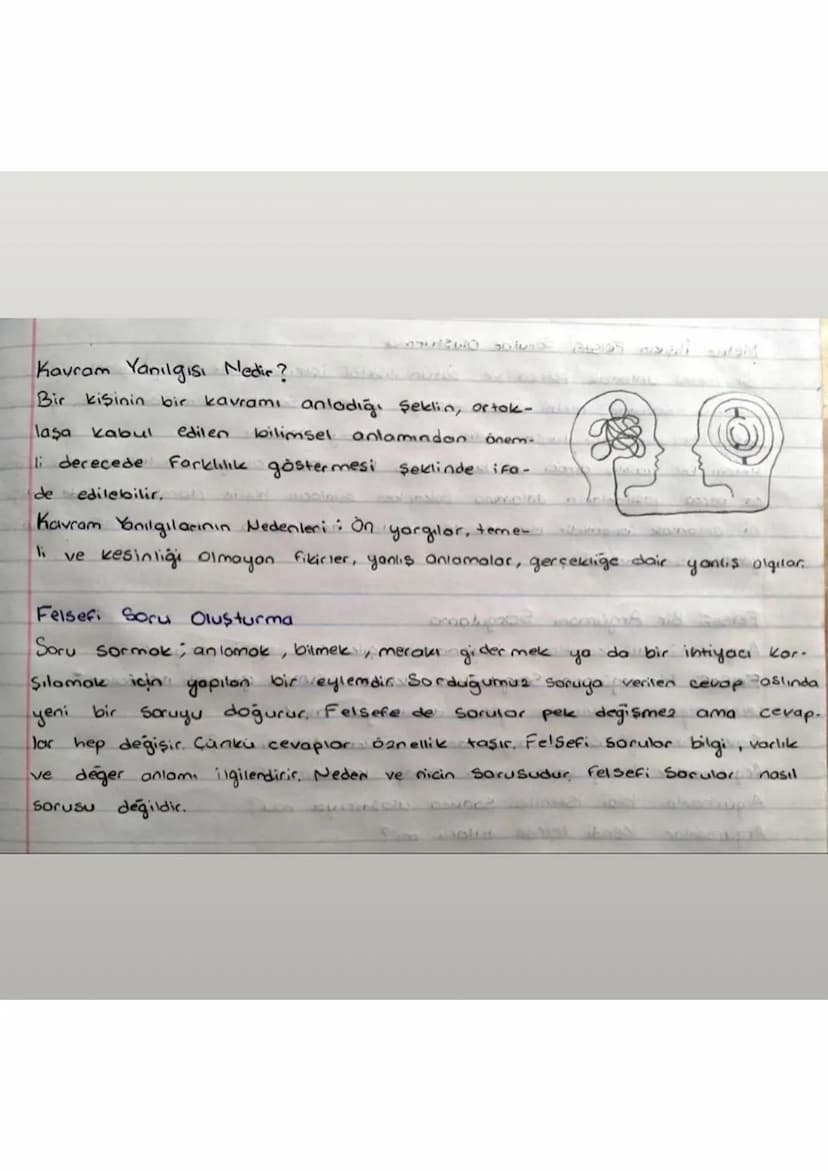 Kavram Yanılgısı Nedir?
Bir kişinin bir kavramı anladığı şeklin, ortak-
laşa kabul edilen bilimsel anlamından önem-
li derecede farklılık göstermesi şeklinde ifa-
de edilebilir.
Kavram Yanılgılarının Nedenleri: Ön yargılar, teme-
li ve kesinliği olmayan fikirler, yanlış anlamalar, gerçekliğe dair yanlış olgılar.
Felsefi Soru Oluşturma
Soru sormak; anlamak, bilmek, merakı gidermek ya da bir ihtiyacı kar-
şılamak için yapılan bir eylemdir. Sorduğumuz soruya verilen cevap aslında
yeni bir soruyu doğurur. Felsefe de sorular pek değişmez ama cevap-
lar hep değişir. Çünkü cevaplar öznellik taşır. Felsefi sorular bilgi, varlık
ve değer anlamı ilgilendirir. Neden ve niçin sorusudur, felsefi sorular nasıl
sorusu değildir.